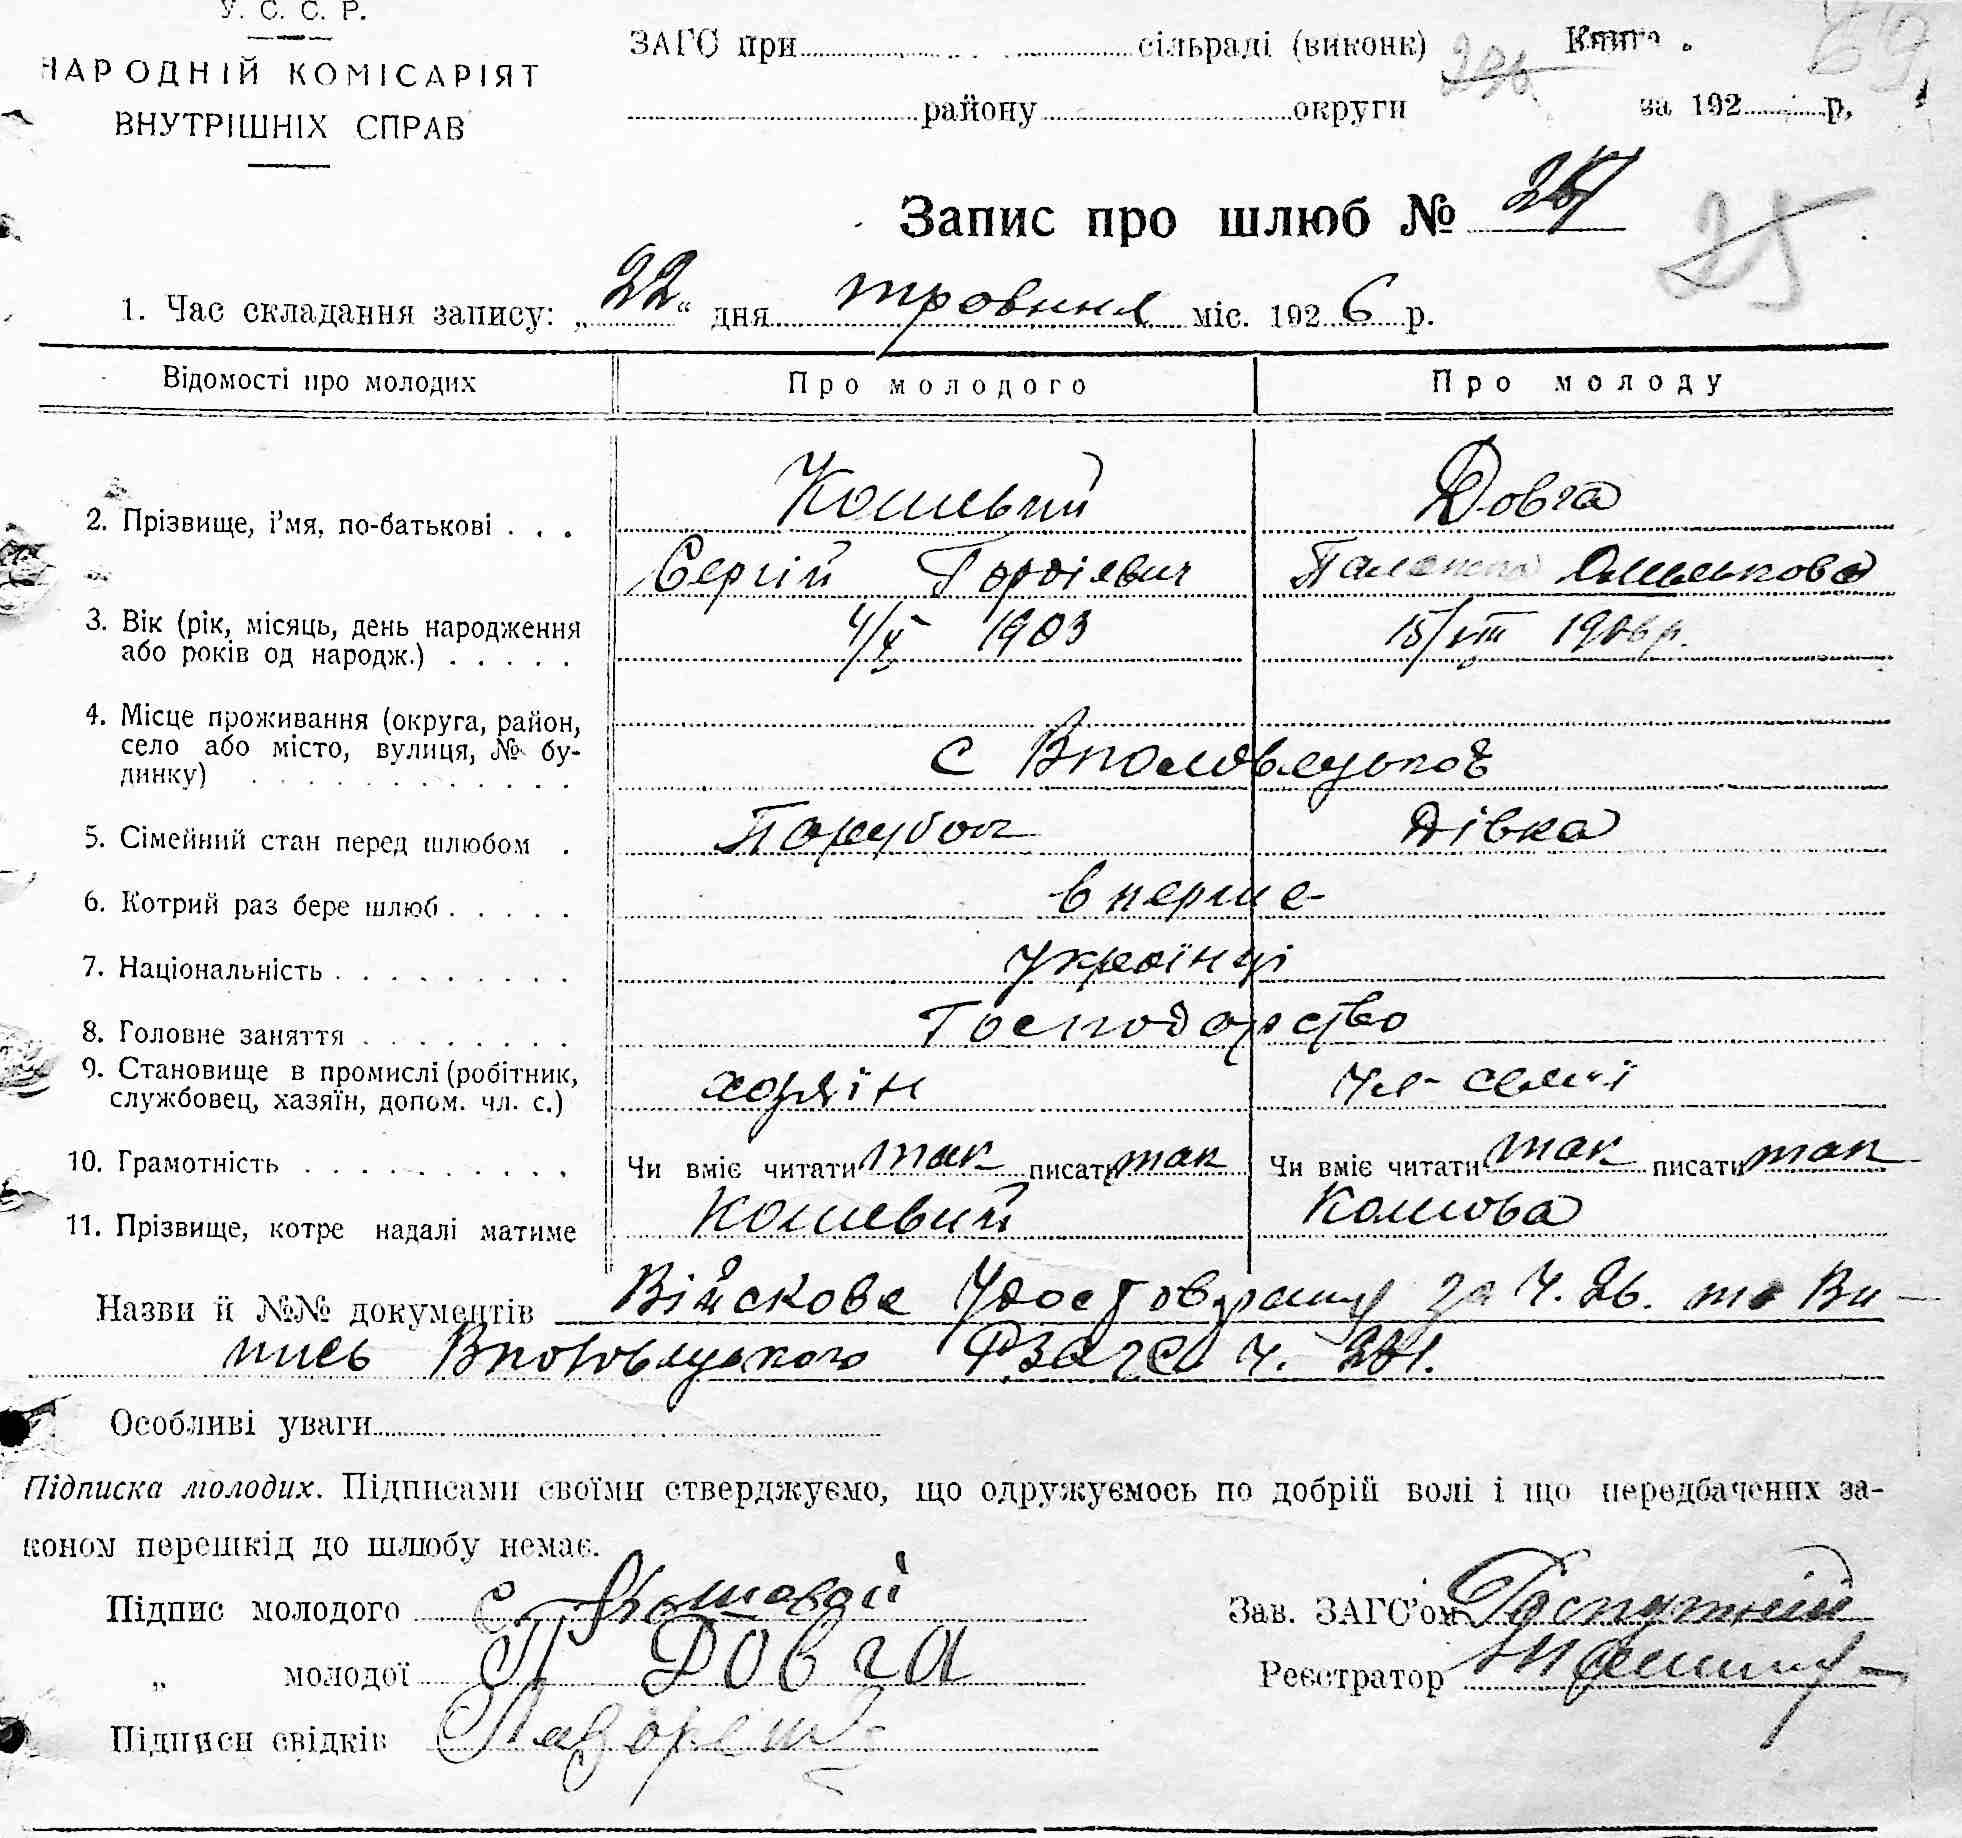 У. С. С. Р.
НАРОДНІЙ КОМІСАРІЯТ
ВНУТРІШНІХ СПРАВ
ЗАГС при сільраді (виконк) Книга
району округи за 192 р.
69
Запис про шлюб №
25
1. Час складання запису: „22“ дня травня міс. 1926 р.
Відомості про молодих Про молодого Про молоду
2. Прізвище, і’мя, по-батькові . . . Кошевий Довга
Сергій Гордієвич Омелькова
3. Вік (рік, місяць, день народження 4/X 1903 15/VIII 1906 р.
або років од народж.) . . . . .
4. Місце проживання (округа, район,
село або місто, вулиця, № бу- с
динку) . . . . . . . . . . . .
5. Сімейний стан перед шлюбом . Парубок Дівка
6. Котрий раз бере шлюб . . . . . вперше
7. Національність . . . . . . . . . українці
8. Головне заняття . . . . . . . . Господарство
9. Становище в промислі (робітник, хазяїн чл. семії
службовец, хазяїн, допом. чл. с.)
10. Грамотність . . . . . . . . . . Чи вміє читати так писати так Чи вміє читати так писати так
11. Прізвище, котре надалі матиме Кошевий Кошова
Назви й №№ документів Війскове за Ч. 26. та Ви-
пись Ч.
Особливі уваги
Підписка молодих. Підписами своїми стверджуємо, що одружуємось по добрій волі і що передбачених за-
коном перешкід до шлюбу немає.
Підпис молодого С Кошовой Зав. ЗАГС’ом
„ молодої П Довга Реєстратор
Підписи свідків